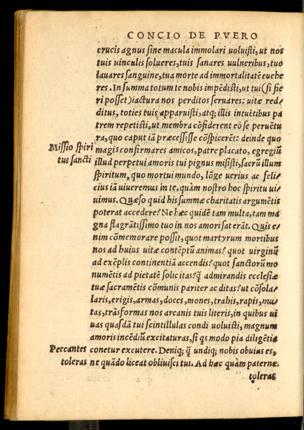 CONCIO DE PVERO
crucis agnus sine macula immolari uoluisti, ut nos
tuis uinculis solueres, tuis sanares uulneribus, tuo
lauares sanguine, tua morte ad immortalitatē euehe
res. In summa totum te nobis impēdisti, ut tui (si fie
ri posset) iactura nos perditos seruares: uitæ red⸗
ditus, toties tuis apparuisti, atq; illis intuētibus pa
trem repetisti, ut membra cōfiderent eò se peruētu⸗
ra, quo caput iā præcessisse cōspicerēt: deinde quo
Missio spiri
tus sancti
magis confirmares amicos, patre placato, egregiū
illud perpetui amoris tui pignus misisti, sacrū illum
spiritum, quo mortui mundo, lōge uerius ac feli⸗
cius iā uiueremus in te, quàm nostro hoc spiritu ui⸗
uimus. Quæso quid his summæ charitatis argumētis
poterat accedere? Ne hæc quidē tam multa, tam ma
gna flagrātissimo tuo in nos amori sat erāt. Quis e⸗
nim cōmemorare possit, quot martyrum mortibus
nos ad huius uitæ contēptū animas? quot uirginū
ad exēplis continentiā accendis? quot sanctorū mo
numētis ad pietatē solicitas? q̄ admirandis ecclesiæ
tuæ sacramētis cōmunis pariter ac ditas? ut cōsola⸗
laris, erigis, armas, doces, mones, trahis, rapis, mu⸗
tas, trāsformas nos arcanis tuis literis, in quibus ui
uas quasdā tui scintillulas condi uoluisti, magnum
amoris incēdiū excitaturas, si qs modo pia diligētia
Peccantes
toleras
conetur excutere. Deniq; q̄ undiq; nobis obuius es,
ne quādo liceat obliuisci tui. Ad hæc quàm paterne
tolerat